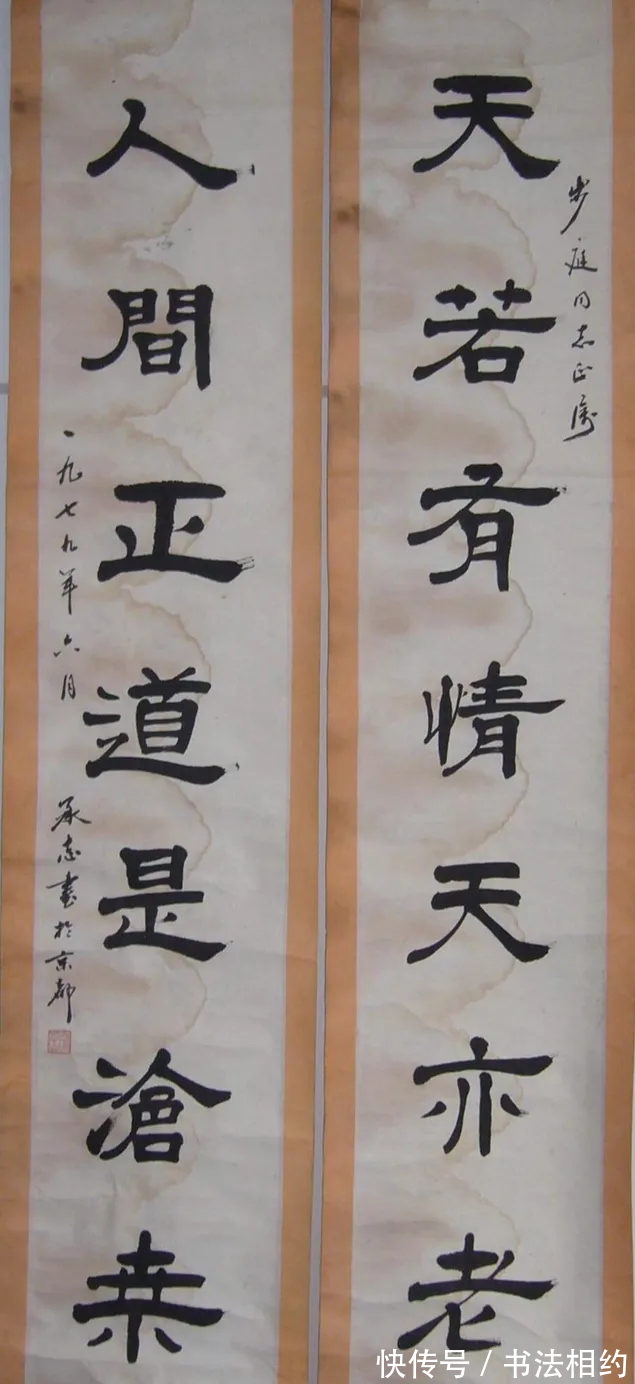 天若有情天亦老
步庭同志正腕
人間正道是滄桒
一九七九年六月
承志書於京都
快传号 / 书法相约